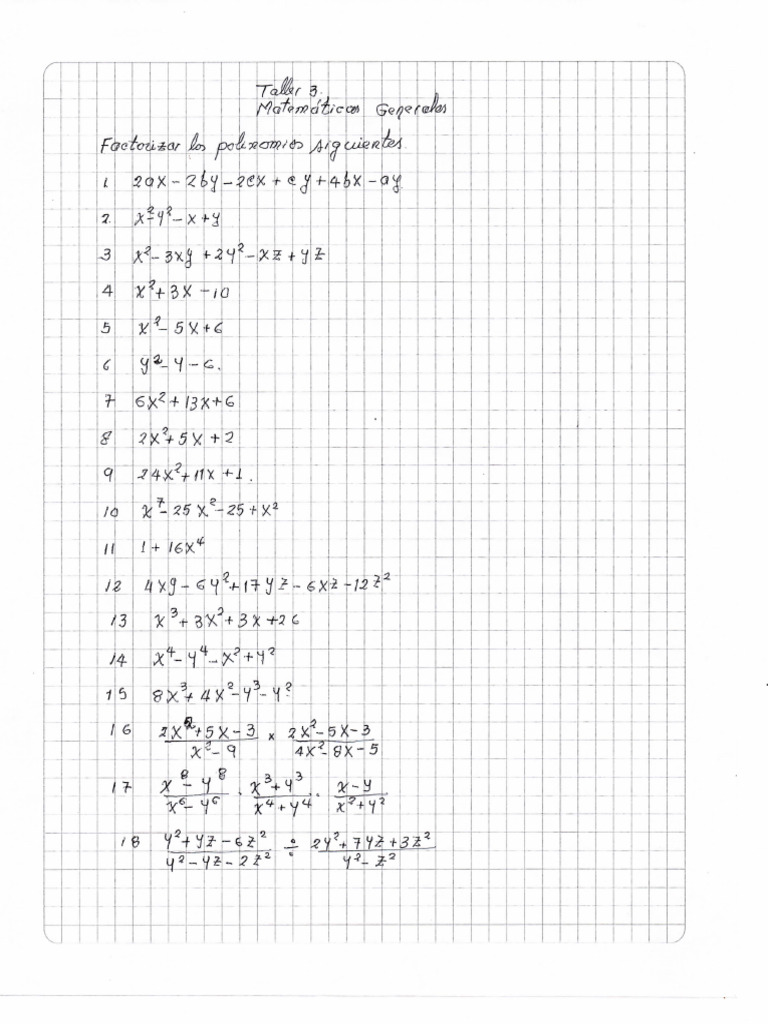 Taller 3.
Matemáticas Generales
Factorizar los polinomios siguientes
1 2ax - 2by - 2cx + cy + 4bx - ay
2. x² - y² - x + y
3 x² - 3xy + 2y² - xz + yz
4 x² + 3x - 10
5 x² - 5x + 6
6 y² - y - 6.
7 6x² + 13x + 6
8 2x² + 5x + 2
9 24x² + 11x + 1.
10 x⁷ - 25x² - 25 + x²
11 1 + 16x⁴
12 4xy - 6y² + 17yz - 6xz - 12z²
13 x³ + 3x² + 3x + 26
14 x⁴ - y⁴ - x² + y²
15 8x³ + 4x² - y³ - y²
16 (2x² + 5x - 3)/(x² - 9) × (2x² - 5x - 3)/(4x² - 8x - 5)
17 (x⁸ - y⁸)/(x⁶ - y⁶) · (x³ + y³)/(x⁴ + y⁴) · (x - y)/(x² + y²)
18 (y² + yz - 6z²)/(y² - yz - 2z²) ÷ (2y² + 7yz + 3z²)/(y² - z²)